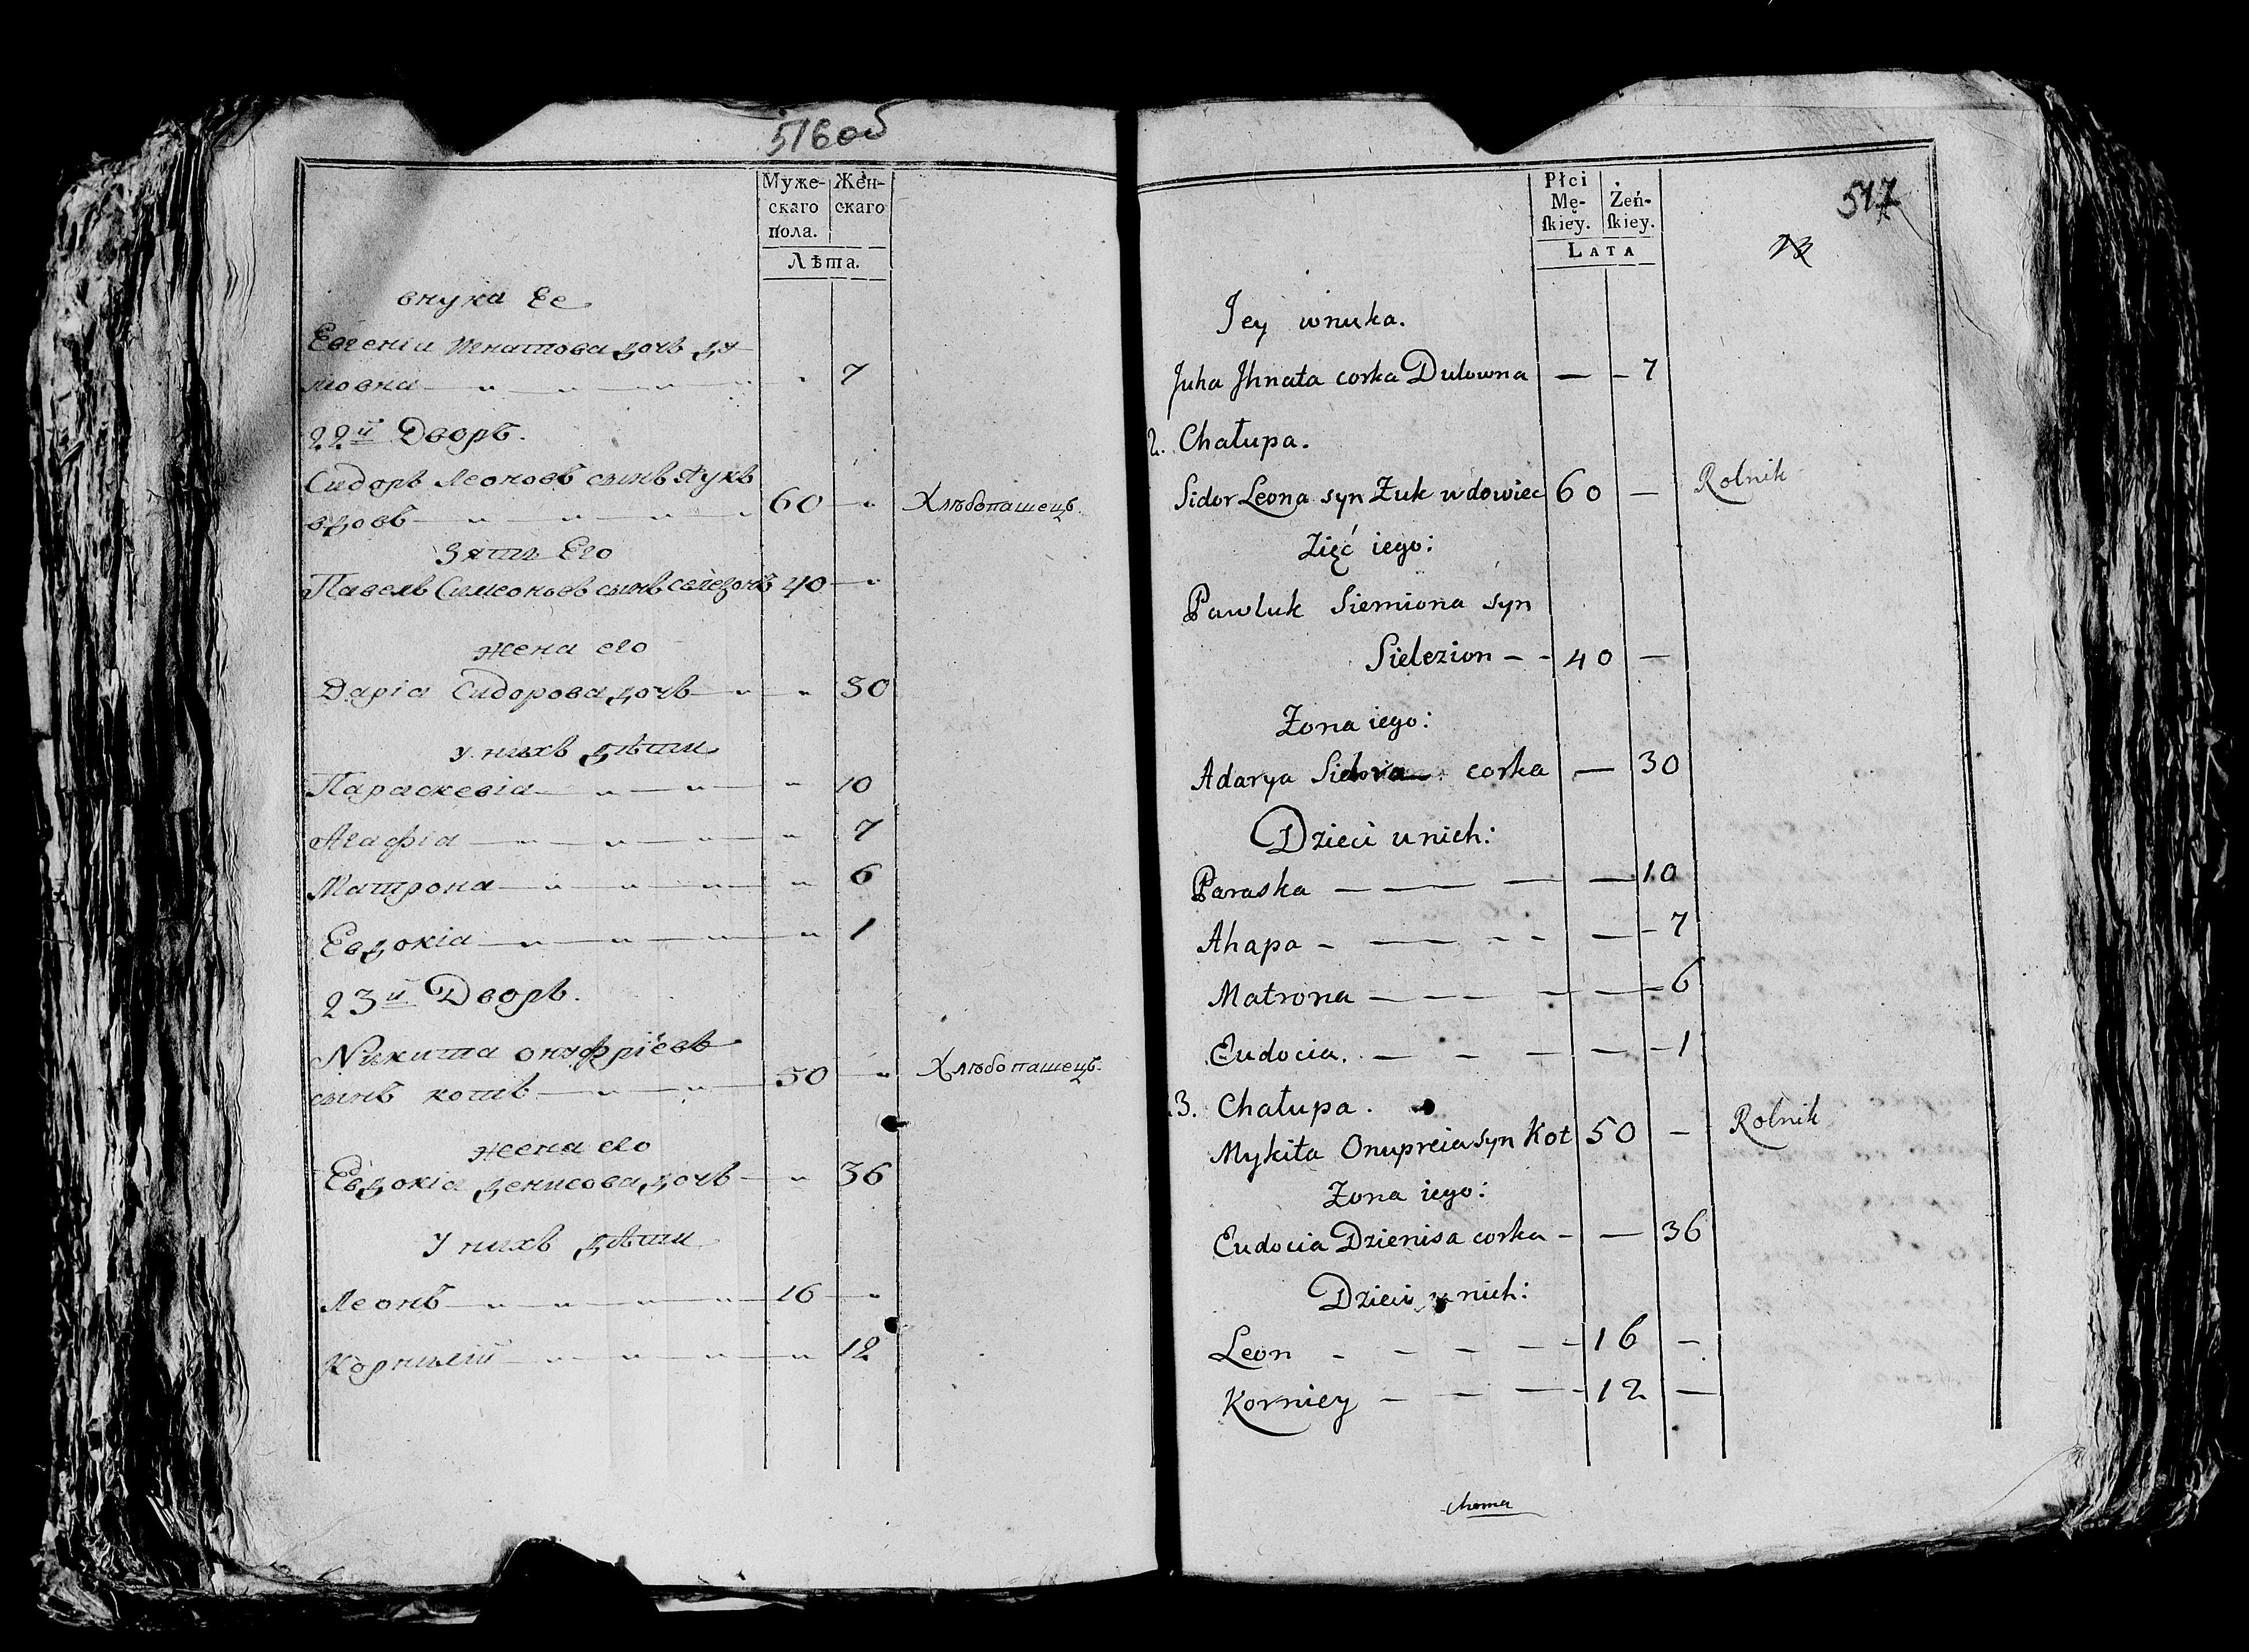 516 об
Муже-
скаго
пола.
Жен-
скаго
Лѣта.
внука Ее
Евгенія Игнатова дочь Ду
ловна 7
22й Дворъ.
Сидоръ Леоновъ сынъ Жукъ
вдовъ 60 — Хлѣбопашецъ.
Зять Его
Павелъ Симеоновъ сынъ Селезонъ 40 —
жена его
Дарія Сидорова дочь 30
у нихъ дѣти
Параскевія 10
Агафія 7
Матрона 6
Евдокія 1
23й Дворъ.
Никита Онуфріевъ
сынъ котъ 50 — Хлѣбопашецъ.
жена его
Евдокія Денисова дочь 36
У нихъ дѣти
Леонъ 16 —
Корнилій 12
Płci
Mę-
ſkiey.
Żeń-
ſkiey.
LATA
517
Jey wnuka.
Juha Jhnata corka Dulowna — — 7
2. Chałupa.
Sidor Leona syn Żuk wdowiec 60 — Rolnik
Zięć iego:
Pawluk Siemiona syn
Sielezion — 40 —
Żona iego:
Adarya Sidora corka — 30
Dzieci u nich:
Paraska — 10
Ahapa — 7
Matrona — 6
Eudocia. — 1
3. Chałupa.
Mykita Onupreia syn Kot 50 — Rolnik
Żona iego:
Eudocia Dzienisa corka — 36
Dzieci u nich:
Leon — 16 —
Korniey — 12 —